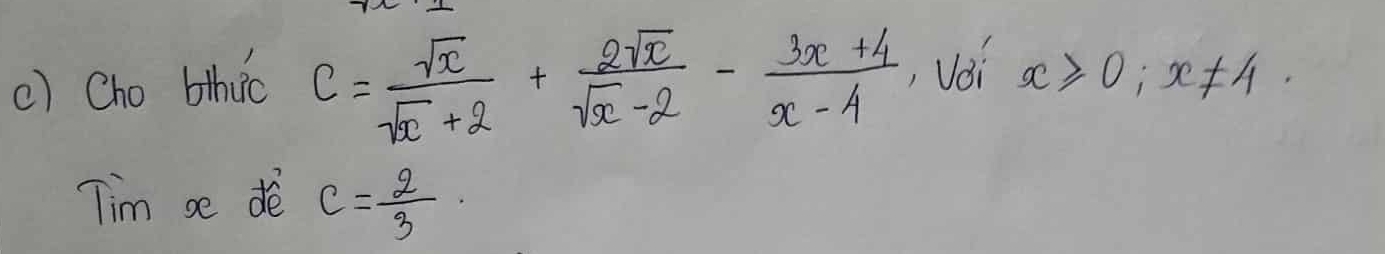 c) Cho bthức C = √x / (√x + 2) + 2√x / (√x - 2) - (3x + 4) / (x - 4), Với x ⩾ 0; x ≠ 4.
Tìm x để C = 2/3.